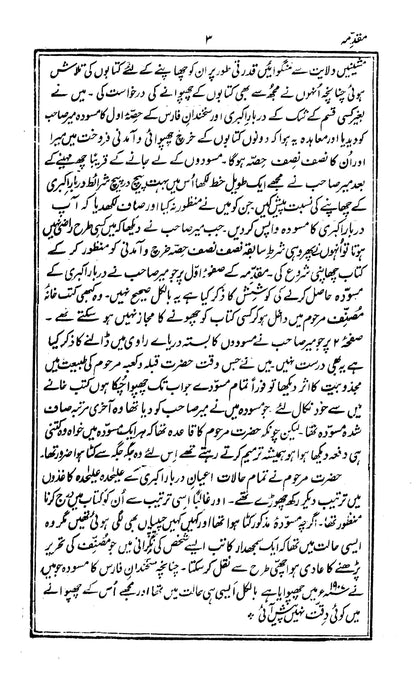 مقدمہ ۳
مشینیں ولایت سے منگوائیں قدرتی طور پر ان کو چھاپنے کے لئے کتابوں کی تلاش
ہوئی چنانچہ اُنہوں نے مجھ سے بھی کتابوں کے چھپوانے کی درخواست کی۔ میں نے
بغیر کسی قسم کے شک کے دربارِ اکبری اور سخندانِ فارس کے حصۂ اول کا مسودہ میر صاحب
کو دیدیا اور معاہدہ یہ ہوا کہ دونوں کتابوں کے خرچ چھپوائی و آمدنی فروخت میں میرا
اور اُن کا نصف نصف حصہ ہوگا۔ مسودوں کے لے جانے کے قریباً چھ مہینے کے
بعد میر صاحب نے مجھے ایک طویل خط لکھا اُس میں بہت پیچ در پیچ شرائط دربارِ اکبری
کے چھاپنے کی نسبت پیش کیں جن کو میں نے منظور نہ کیا اور صاف لکھدیا کہ آپ
دربارِ اکبری کا مسودہ واپس کر دیں۔ جب میر صاحب نے دیکھا کہ میں کسی طرح راضی نہیں
ہوتا تو اُنہوں نے پھر وہی شرط سابقہ نصف نصف حصہ خرچ و آمدنی کو منظور کر کے
کتاب چھاپنی شروع کی۔ مقدمہ کے صفحۂ اول پر جو میر صاحب نے دربارِ اکبری کے
مسودہ حاصل کرنے کی کوشش کا ذکر کیا ہے یہ بالکل صحیح نہیں۔ وہ کبھی کتب خانۂ
مصنف مرحوم میں داخل ہو کر کسی کتاب کو چھونے کا مجاز نہیں ہو سکتے تھے۔
صفحہ ۲ پر جو میر صاحب نے مسودوں کا بستہ دریائے راوی میں ڈالنے کا ذکر کیا
ہے یہ بھی درست نہیں۔ میں نے جس وقت حضرت قبلہ و کعبہ مرحوم کی طبیعت میں
مجذوبیت کا اثر دیکھا تو فوراً تمام مسودے جو اب تک چھپوا چکا ہوں کتب خانے
میں سے خود نکال لئے۔ جو مسودہ میں نے میر صاحب کو دیا تھا وہ آخری مرتبہ صاف
شدہ مسودہ تھا۔ لیکن چونکہ حضرت مرحوم کا قاعدہ تھا کہ ہر ایک مسودہ میں خواہ وہ کتنی
ہی دفعہ دیکھا ہوا ہو ہمیشہ ترمیم کرتے رہتے تھے اِس لئے وہ جگہ جگہ سے کٹا ہوا ضرور تھا۔
حضرت مرحوم نے تمام حالات اعیانِ دربارِ اکبری کے علیٰحدہ علیٰحدہ کاغذوں
میں ترتیب دیکر رکھ چھوڑے تھے۔ اور غالباً اسی ترتیب سے اُن کو کتاب میں درج کرنا
منظور تھا۔ اگرچہ مسودۂ مذکور کٹا ہوا تھا اور کہیں کہیں چیپیاں بھی لگی ہوئی تھیں مگر وہ
ایسی حالت میں تھا کہ ایک سمجھدار کاتب ایسے شخص کی نگرانی میں جو مصنف کی تحریر
پڑھنے کا عادی ہو اچھی طرح سے نقل کر سکتا۔ چنانچہ سخندانِ فارس کا مسودہ جو میں نے
۱۹۰۷ء میں چھپوایا ہے بالکل ایسی ہی حالت میں تھا اور مجھے اُس کے چھپوانے
میں کوئی دقت نہیں پیش آئی